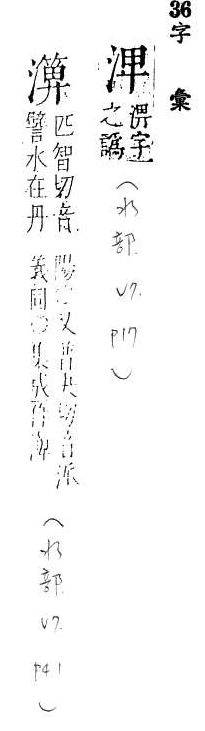 36字 彙
渒 淠字
之譌（水部 V7. P17）
㵨 匹智切音
譬水在丹
陽○又普大切音派
義同○集成作
（水部 V7. P41）